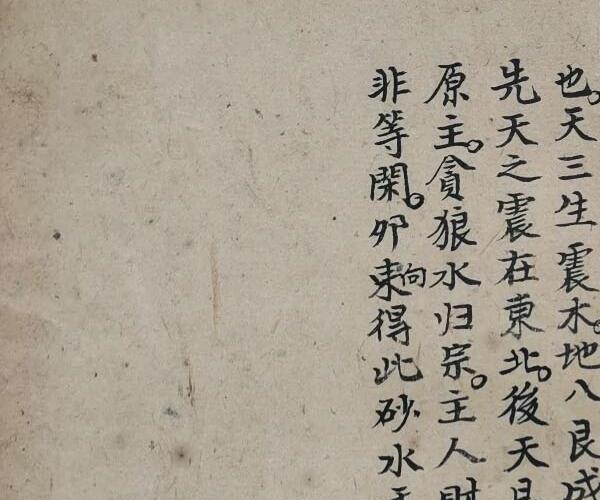 也。天三生震木。地八艮成
先天之震在東北。後天
原主。貪狼水归宗。主人財
非等閑。卯東向得此砂水